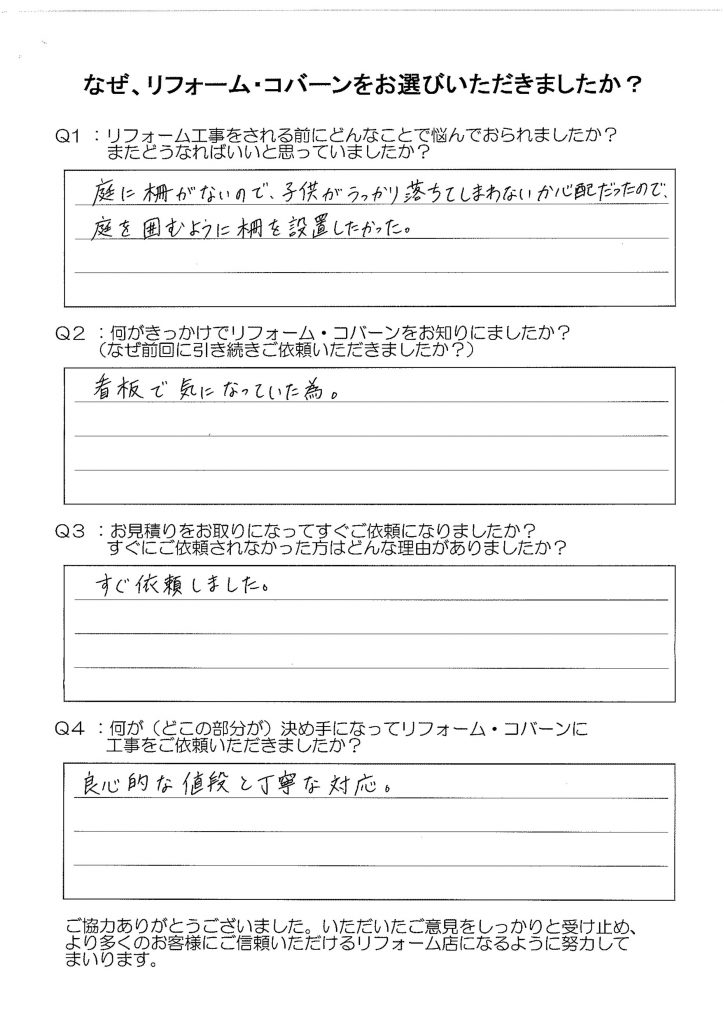 なぜ、リフォーム・コバーンをお選びいただきましたか？
Q1 ：リフォーム工事をされる前にどんなことで悩んでおられましたか？
またどうなればいいと思っていましたか？
庭に柵がないので、子供がうっかり落ちてしまわないか心配だったので、
庭を囲むように柵を設置したかった。
Q2 ：何がきっかけでリフォーム・コバーンをお知りにましたか？
（なぜ前回に引き続きご依頼いただきましたか？）
看板で気になっていた為。
Q3 ：お見積りをお取りになってすぐご依頼になりましたか？
すぐにご依頼されなかった方はどんな理由がありましたか？
すぐ依頼しました。
Q4 ：何が（どこの部分が）決め手になってリフォーム・コバーンに
工事をご依頼いただきましたか？
良心的な値段と丁寧な対応。
ご協力ありがとうございました。いただいたご意見をしっかりと受け止め、
より多くのお客様にご信頼いただけるリフォーム店になるように努力して
まいります。